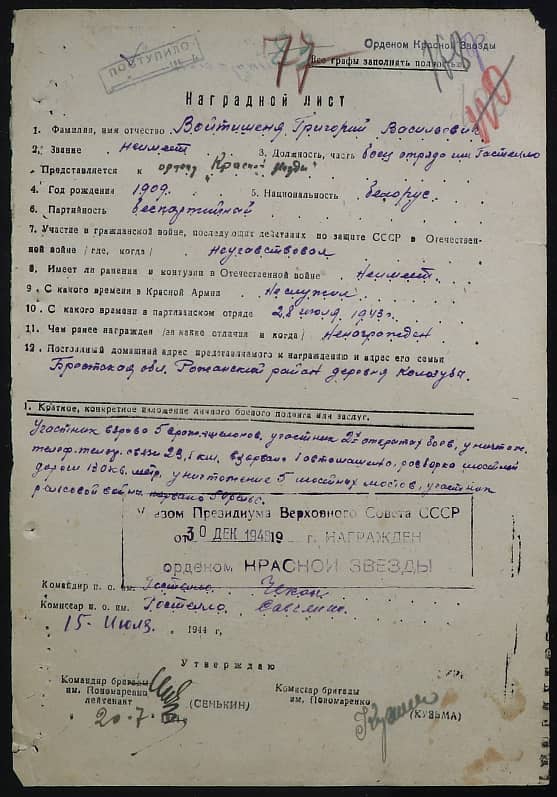 77
Орденом Красной Звезды
Все графы заполнять полностью
ПОСТУПИЛО
Наградной лист
1. Фамилия, имя отчество Войтишеня Григорий Васильевич
2. Звание неимеет 3. Должность, часть боец отряда им Гастелло
Представляется к ордену "Красной звезды"
4. Год рождения 1909. 5. Национальность белорус
6. Партийность беспартийный
7. Участие в гражданской войне, последующих действиях по защите СССР в Отечествен-
ной войне /где, когда/ Неучавствовал
8. Имеет ли ранения и контузии в Отечественной войне Неимеет
9. С какого времени в Красной Армии Неслужил
10. С какого времени в партизанском отряде 28 июля 1943 г.
11. Чем ранее награжден /за какие отличия и когда/ Ненагражден
12. Постоянный домашний адрес представляемого к награждению и адрес его семьи
Брестская обл. Ружанский район деревня
1. Краткое, конкретное изложение личного боевого подвига или заслуг.
Участник взрыва 5 эшелонов, участник 2х открытых боев, уничтож.
связи взорвано 1 автомашина,
дороги уничтожение 5 мостов, участник
рельсовой войны
Указом Президиума Верховного Совета СССР
от 30 ДЕК 1948 19 г. НАГРАЖДЕН
орденом КРАСНОЙ ЗВЕЗДЫ
Командир п. о. им. Гастелло
Комиссар п. о. им. Гастелло
15 Июля 1944 г,
Утверждаю
Командир бригады
им. Пономаренко
лейтенант (СЕНЬКИН)
20.7.
Комиссар бригады
им. Пономаренко
(КУЗЬМА)